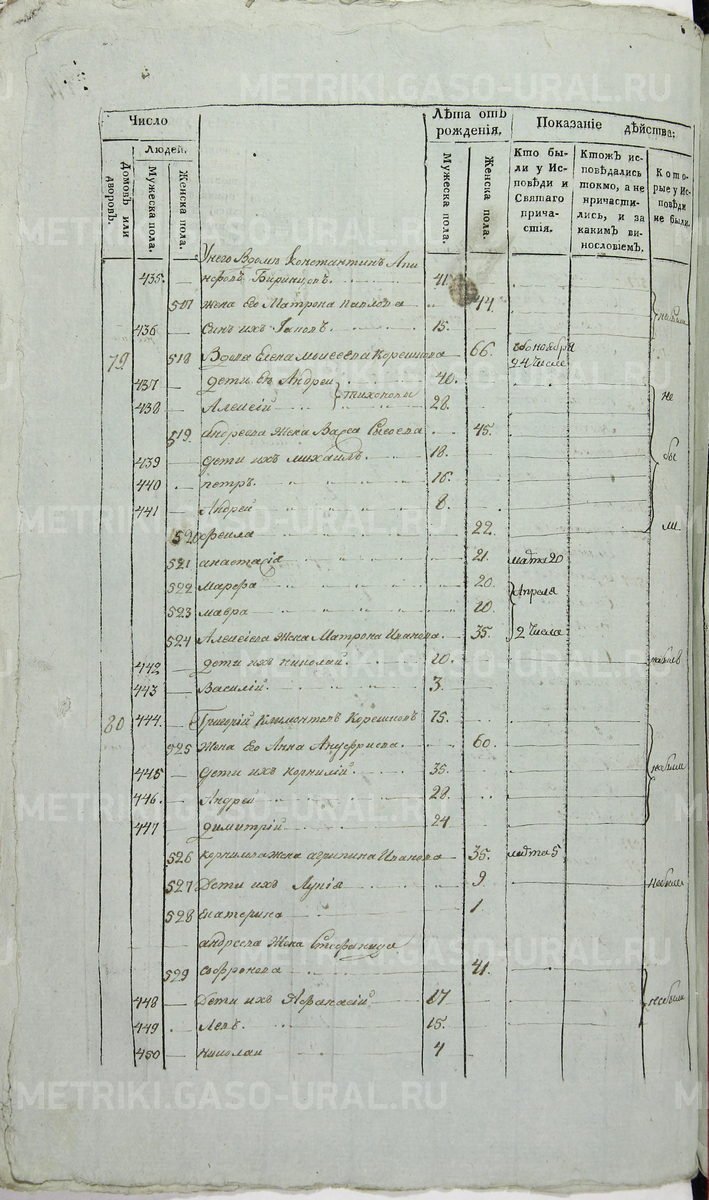 METRIKI.GASO-URAL.RU
Число
Лѣта отъ рожденія,
Показаніе дѣйства:
Людей.
Домовъ или дворовъ.
Мужеска пола.
Женска пола.
Мужеска пола.
Женска пола.
Кто были у Исповѣди и Святаго причастія.
Ктожъ исповѣдались токмо, а не причастились, и за какимъ винословіемъ.
Которые у Исповѣди не были.
Константинъ
435. 41.
517 жена Его Матрона павлова 44.
436 Сынъ ихъ 15.
79 518 Вдова Елена Моисеева Корешкова 66. ноября 24 Числа
437 дети Ея Андрей 40.
438 Алексей Тихоновы 28.
не
519. андреева жена Васса Сысоева 45.
439 дети ихъ михаилъ. 18. бы
440 петръ. 16.
441 Андрей 8. ли
520 22.
521 анастасія 21. марта 20
522 Марфа 20. Апреля
523 мавра 20.
524 Алексеева жена Матрона Иванова. 35. 2 Числа
442 дети ихъ николай. 10.
443 Василій. 3.
80 444. Григорій Климонтовъ Корешковъ 75.
525 жена Ево Анна Ануфриева. 60.
445 дети ихъ корнилій. 35. небыли
446. Андрей 28.
447 димитрій 24
526 корнилова жена агрипина Иванова 35. марта 5
527 Дети ихъ Лукія 9 небыли
528 Екатерина 1.
андреева жена Стефанида
529 софронова 41.
448 Дети ихъ Афанасій 17 небыли
449 Левъ. 15.
450 николай 4